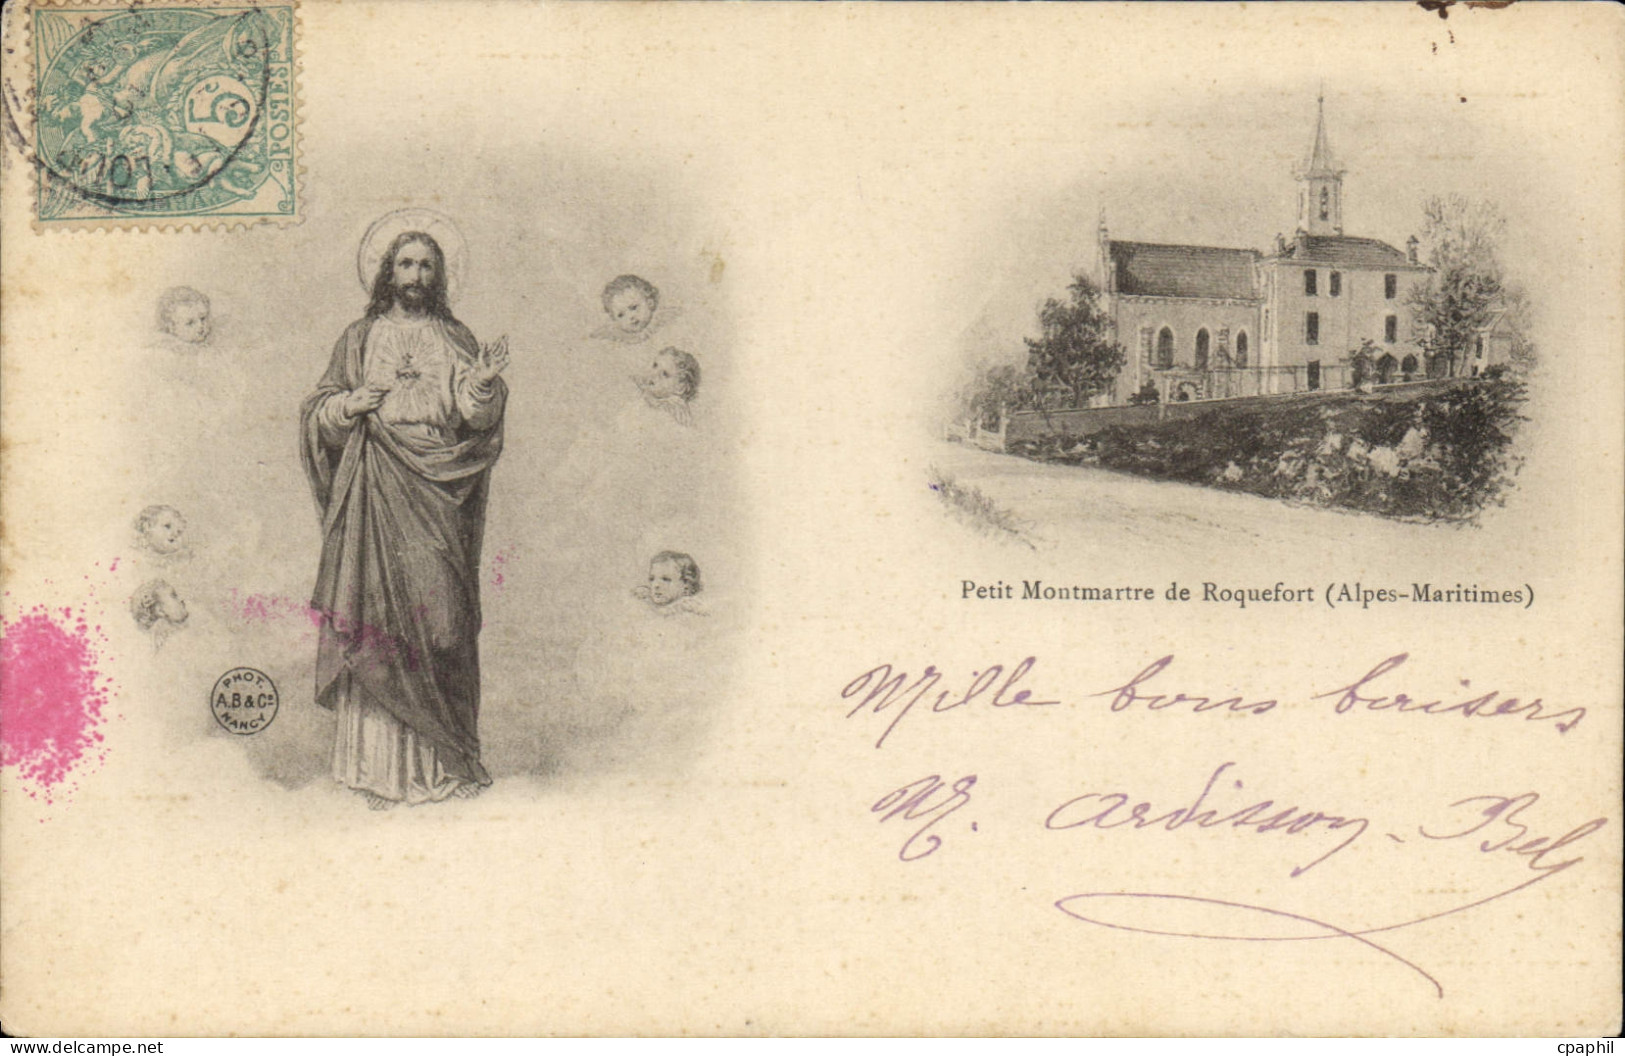 5c
POSTES
PHOT.
A.B & Cie
NANCY
Petit Montmartre de Roquefort (Alpes-Maritimes)
Mille bons baisers
M. Ardisson-
cpaphil